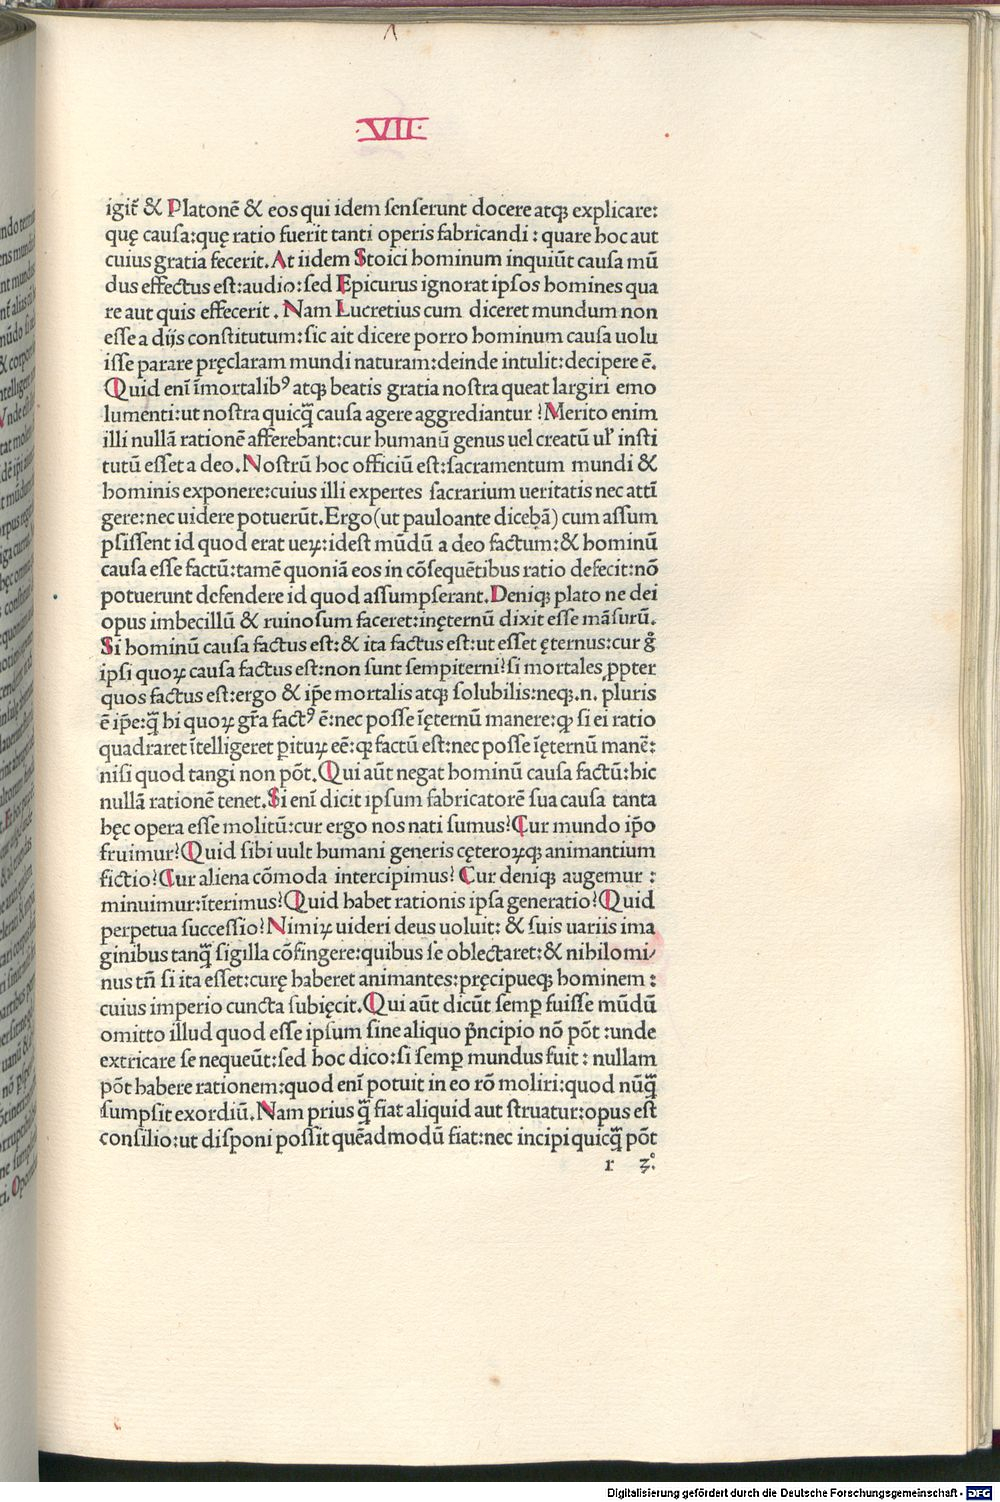 ·VII·
igit᷑ & Platonē & eos qui idem ſenſerunt docere atqꝫ explicare:
quę cauſa:quę ratio fuerit tanti operis fabricandi : quare hoc aut
cuius gratia fecerit. At iidem Stoici hominum inquiūt cauſa mū
dus effectus eſt:audio:ſed Epicurus ignorat ipſos homines qua
re aut quis effecerit . Nam Lucretius cum diceret mundum non
eſſe a dijs conſtitutum:ſic ait dicere porro hominum cauſa uolu
iſſe parare pręclaram mundi naturam:deinde intulit:decipere ē.
Quid enī īmortalibꝰ atqꝫ beatis gratia noſtra queat largiri emo
lumenti:ut noſtra quicꝙ̃ cauſa agere aggrediantur ? Merito enim
illi nullā rationē afferebant:cur humanū genus uel creatū ul̕ inſti
tutū eſſet a deo. Noſtrū hoc officiū eſt:ſacramentum mundi &
hominis exponere:cuius illi expertes ſacrarium ueritatis nec attī
gere:nec uidere potuerūt.Ergo(ut pauloante dicebā) cum aſſum
pſiſſent id quod erat ueꝝ:ideſt mūdū a deo factum:& hominū
cauſa eſſe factū:tamē quoniā eos in cōſequētibus ratio defecit:nō
potuerunt defendere id quod aſſumpſerant. Deniqꝫ plato ne dei
opus imbecillū & ruinoſum faceret:inęternū dixit eſſe māſurū.
Si hominū cauſa factus eſt:& ita factus eſt:ut eſſet ęternus:cur g̊
ipſi quoꝝ cauſa factus eſt:non ſunt ſempiterni?ſi mortales ꝓpter
quos factus eſt:ergo & ip̄e mortalis atqꝫ ſolubilis:neqꝫ.n. pluris
ē ip̄e:ꝙ̃ hi quoꝝ gr̄a factꝰ ē:nec poſſe īęternū manere:ꝙ ſi ei ratio
quadraret ītelligeret ꝑituꝝ eē:ꝙ factū eſt:nec poſſe īęternū manē:
niſi quod tangi non pōt. Qui aūt negat hominū cauſa factū:hic
nullā rationē tenet. Si enī dicit ipſum fabricatorē ſua cauſa tanta
hęc opera eſſe molitū:cur ergo nos nati ſumus? Cur mundo ip̄o
fruimur? Quid ſibi uult humani generis cęteroꝝqꝫ animantium
fictio? Cur aliena cōmoda intercipimus? Cur deniqꝫ augemur :
minuimur:īterimus? Quid habet rationis ipſa generatio? Quid
perpetua ſucceſſio? Nimiꝝ uideri deus uoluit: & ſuis uariis ima
ginibus tanꝙ̃ ſigilla cōfingere:quibus ſe oblectaret:& nihilomi/
nus tn̄ ſi ita eſſet:curę haberet animantes:pręcipueqꝫ hominem :
cuius imperio cuncta ſubięcit. Qui aūt dicūt ſemꝑ fuiſſe mūdū
omitto illud quod eſſe ipſum ſine aliquo p̄ncipio nō pōt :unde
extricare ſe nequeūt:ſed hoc dico:ſi ſemꝑ mundus fuit : nullam
pōt habere rationem:quod enī potuit in eo rō moliri:quod nūꝙ̃
ſumpſit exordiū. Nam prius ꝙ̃ fiat aliquid aut ſtruatur:opus eſt
conſilio:ut diſponi poſſit quēadmodū fiat:nec incipi quicꝙ̃ pōt
r 3°.
Digitalisierung gefördert durch die Deutsche Forschungsgemeinschaft - DFG